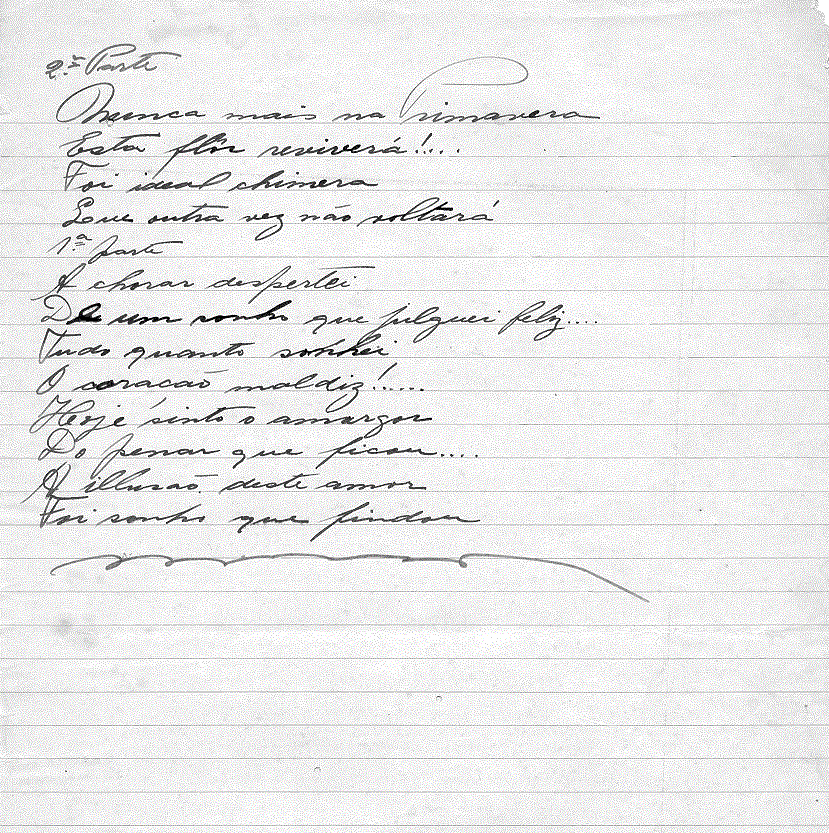 2ª Parte
Nunca mais na Primavera
Esta flôr reviverá!....
Foi ideal chimera
Que outra vez não voltará
1ª parte
A chorar despertei
De um sonho que julguei feliz....
Tudo quanto sonhei
O coracão maldiz!.....
Hoje sinto o amargor
Do penar que ficou....
A illusão deste amor
Foi sonho que findou